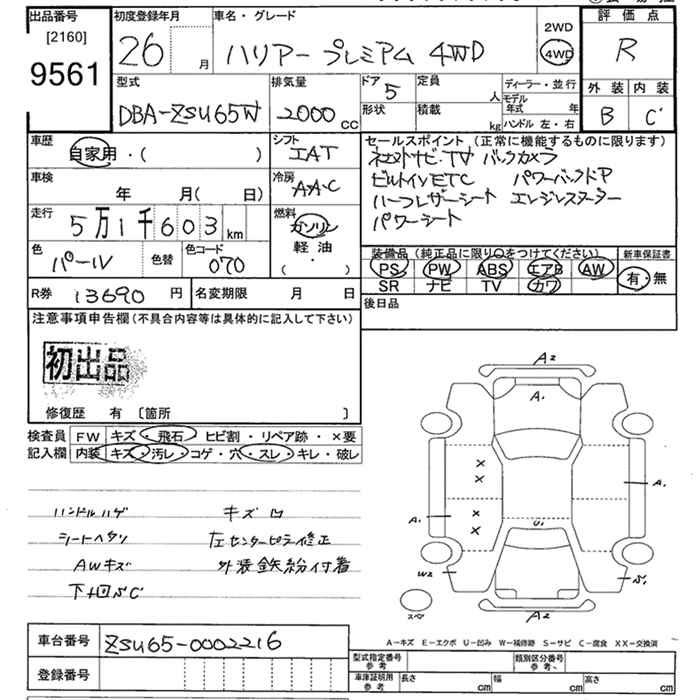 出品番号 初度登録年月 車名・グレード 評価点
[2160]
9561
26 月 ハリアー プレミアム 4WD 2WD 4WD R
型式 排気量 ドア 定員 ディーラー・並行 外装 内装
DBA-ZSU65W 2000 CC 5 人 モデル年式 年 B C
形状 積載 kg ハンドル 左・右
車歴 シフト セールスポイント (正常に機能するものに限ります)
自家用・( ) IAT
車検 冷房
年 月( 日) AAC
ビルトインETC パワーバックドア
ハーフレザーシート
パワーシート
走行 燃料
5万1千603km ガソリン
軽油
( ・ )
色 色替 色コード
パール 070
装備品 (純正品に限り○をつけてください) 新車保証書
PS PW ABS エアB AW 有・無
SR ナビ TV カワ
R券 13690 円 名変期限 月 日
後日品
注意事項申告欄(不具合内容等は具体的に記入して下さい)
初出品
修復歴 有 〔箇所 〕
検査員 FW キズ・飛石・ヒビ割・リペア跡・×要
記入欄 内装 キズ・汚レ・コゲ・穴・スレ・キレ・破レ
ハンドルハゲ キズ凹
シートヘタリ 左センターピラー修正
AWキズ 外装鉄粉付着
下回りSC
A2
A1
X
X
A1
A1
X
X
U1
W2
S1
スペア
A2
A-キズ E-エクボ U-凹み W-補修跡 S-サビ C-腐食 XX-交換済
車台番号 ZSU65-0002216
登録番号
型式指定番号 参考 類別区分番号 参考
車庫証明用 参考 長さ cm 幅 cm 高さ cm